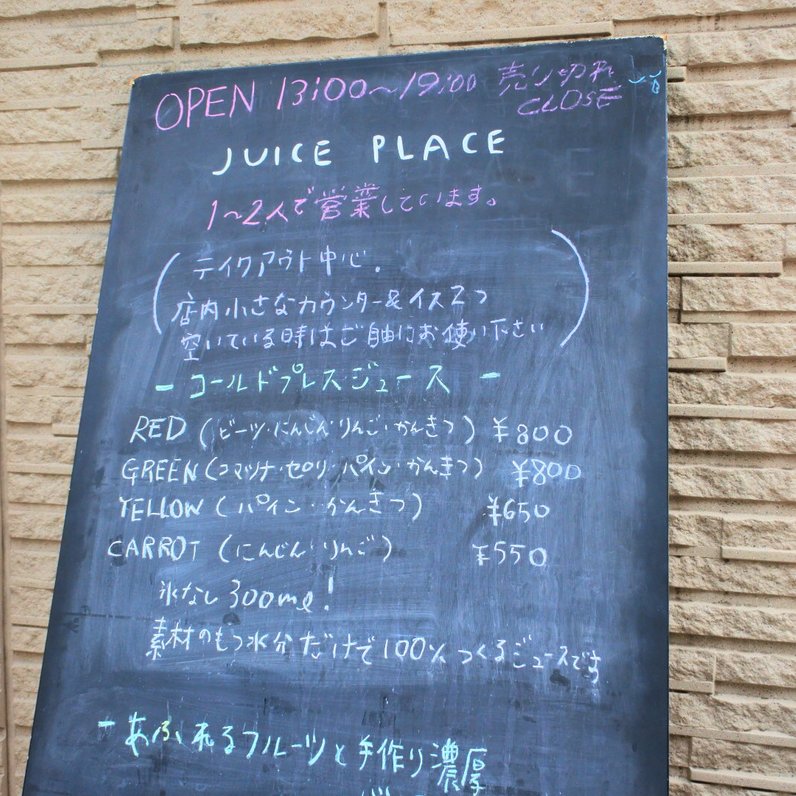 OPEN 13:00〜19:00 売り切れ CLOSE
JUICE PLACE
1〜2人で営業しています。
(テイクアウト中心.
店内小さなカウンター&イス2つ
空いている時はご自由にお使い下さい)
- コールドプレスジュース -
RED (ビーツ・にんじん・りんご・かんきつ) ¥800
GREEN (コマツナ・セロリ・パイン・かんきつ) ¥800
YELLOW (パイン・かんきつ) ¥650
CARROT (にんじん・りんご) ¥550
氷なし 300ml!
素材のもつ水分だけで100%つくるジュースです
- あふれるフルーツと手作り濃厚